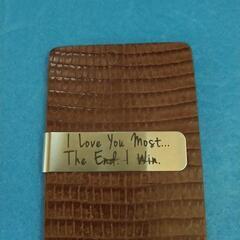 I Love You Most...
The End. I Win.